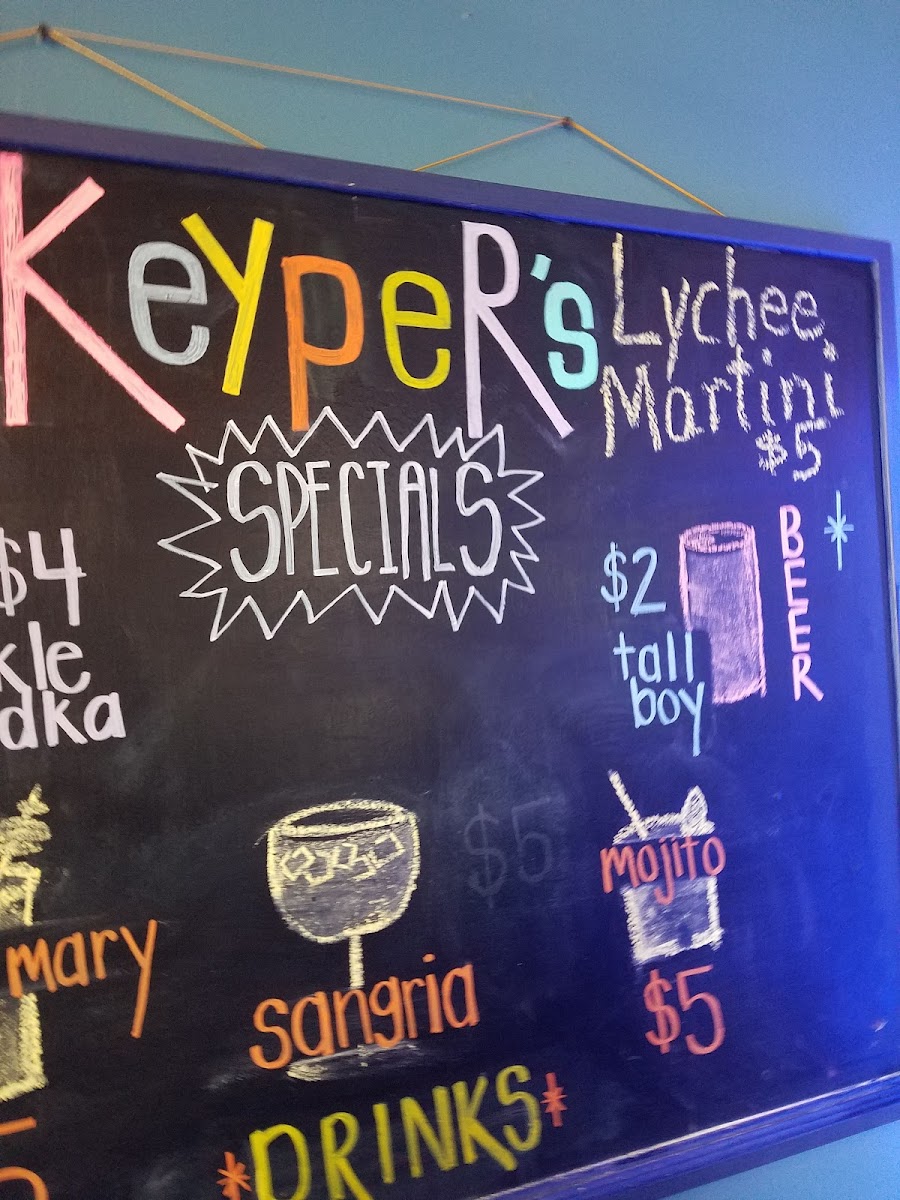 KeypeR's
SPECIALS
Lychee
Martini
$5
$4
kle
dka
$2
tall
boy
BEER
mary
sangria
$5
mojito
$5
*DRINKS*